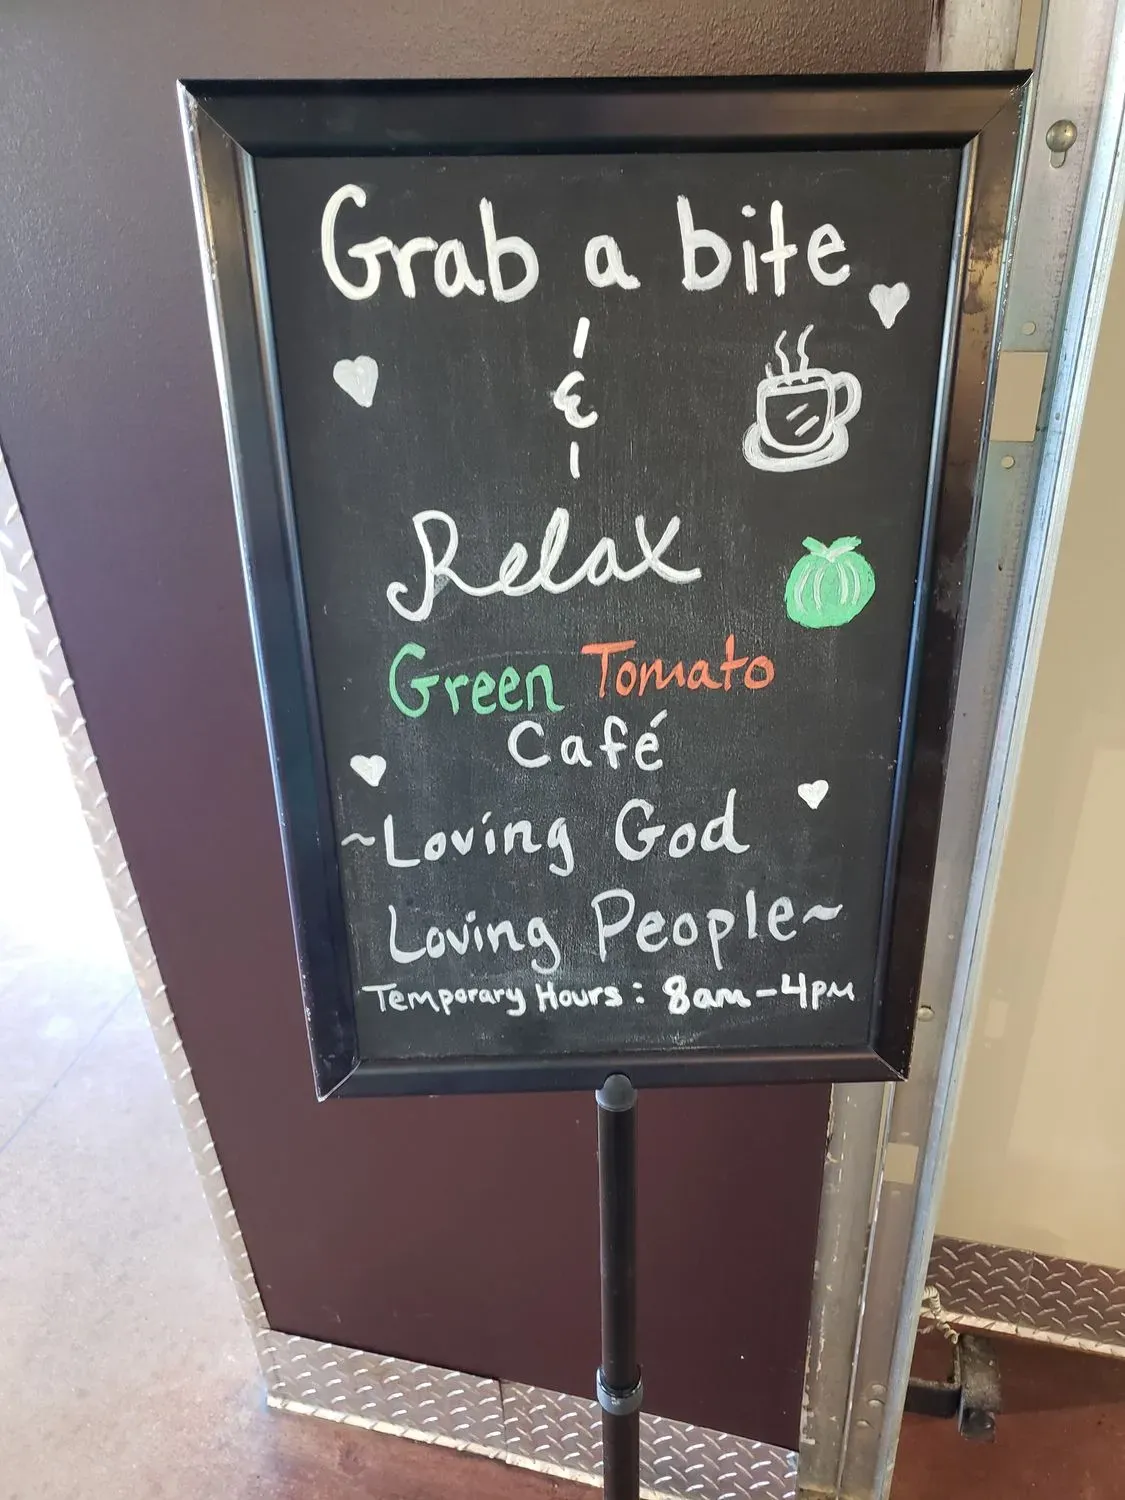 Grab a bite
&
Relax
Green Tomato
Café
~Loving God
Loving People~
Temporary Hours: 8am-4pm